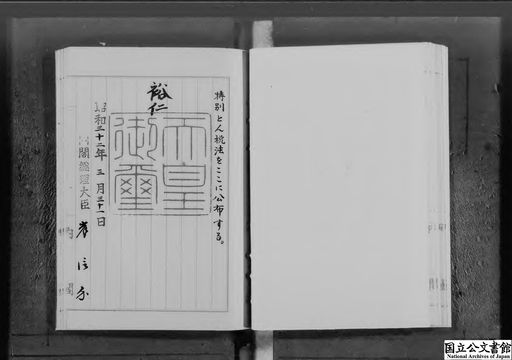 特別とん税法をここに公布する。
裕仁
天皇御璽
昭和三十二年三月三十一日
内閣総理大臣 岸信介
国立公文書館
National Archives of Japan